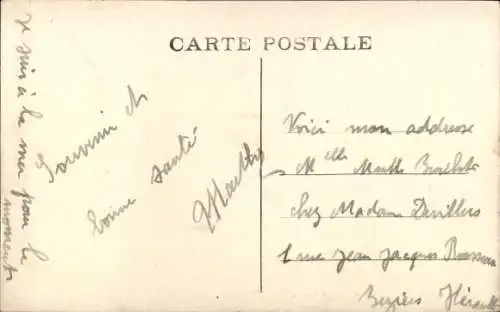 CARTE POSTALE
je suis à la mer pour le
moment
Souvenir et
bonne santé
Voici mon addresse
Melle
chez Madame Devillers
1 rue Jean Jacques Rousseau
Beziers Hérault